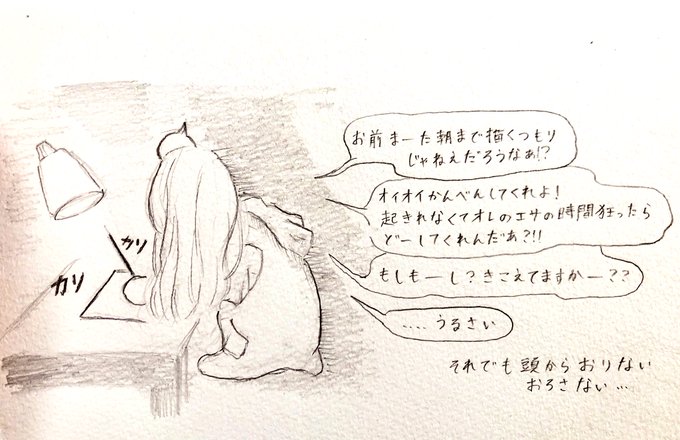 お前まーた朝まで描くつもり
じゃねえだろうなぁ!?
オイオイかんべんしてくれよ!
起きれなくてオレのエサの時間狂ったら
どーしてくれんだあ?!!
もしもーし?きこえてますかー??
....うるさい
カリ
カリ
それでも頭からおりない
おろさない...